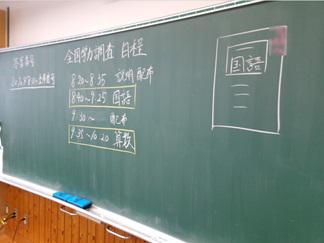 答案番号
全国学力調査 日程
8:20~8:35 説明 配布
8:40~9:25 国語
9:30~ 配布
9:35~10:20 算数
国語